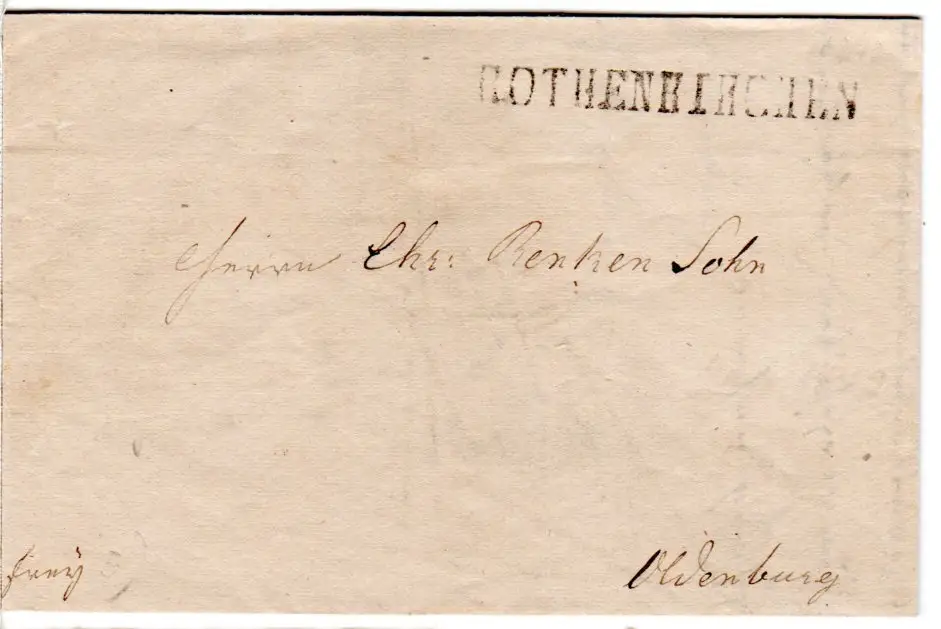 ROTHENKIRCHEN
Herrn Chr: Renken Sohn
frey
Oldenburg